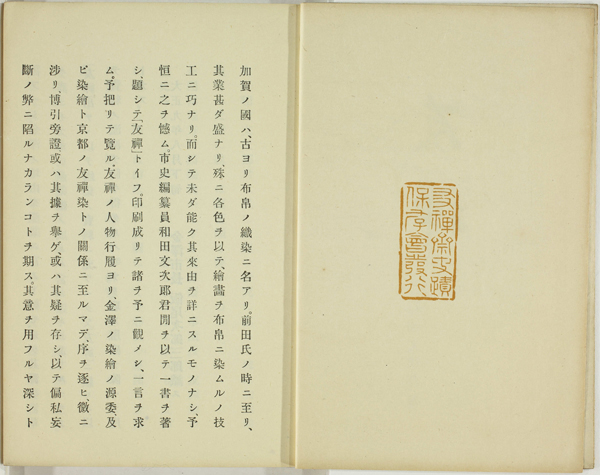 友禪斎史蹟
保存會發行
加賀ノ國ハ、古ヨリ布帛ノ織染ニ名アリ。前田氏ノ時ニ至リ、
其業甚ダ盛ナリ、殊ニ各色ヲ以テ、繪畫ヲ布帛ニ染ムルノ技
工ニ巧ナリ。而シテ未ダ能ク其來由ヲ詳ニスルモノナシ、予
恒ニ之ヲ憾ム。市史編纂員和田文次郎君閒ヲ以テ一書ヲ著
シ、題シテ「友禪」トイフ。印刷成リテ諸ヲ予ニ觀メシ、一言ヲ求
ム。予把リテ覽ル、友禪ノ人物行履ヨリ、金澤ノ染繪ノ源委、及
ビ染繪ト京都ノ友禪染トノ關係ニ至ルマデ、序ヲ逐ヒ、徵ニ
涉リ、博引旁證、或ハ其據ヲ擧ゲ、或ハ其疑ヲ存シ、以テ偏私妄
斷ノ弊ニ陷ルナカランコトヲ期ス。其意ヲ用フルヤ深シト